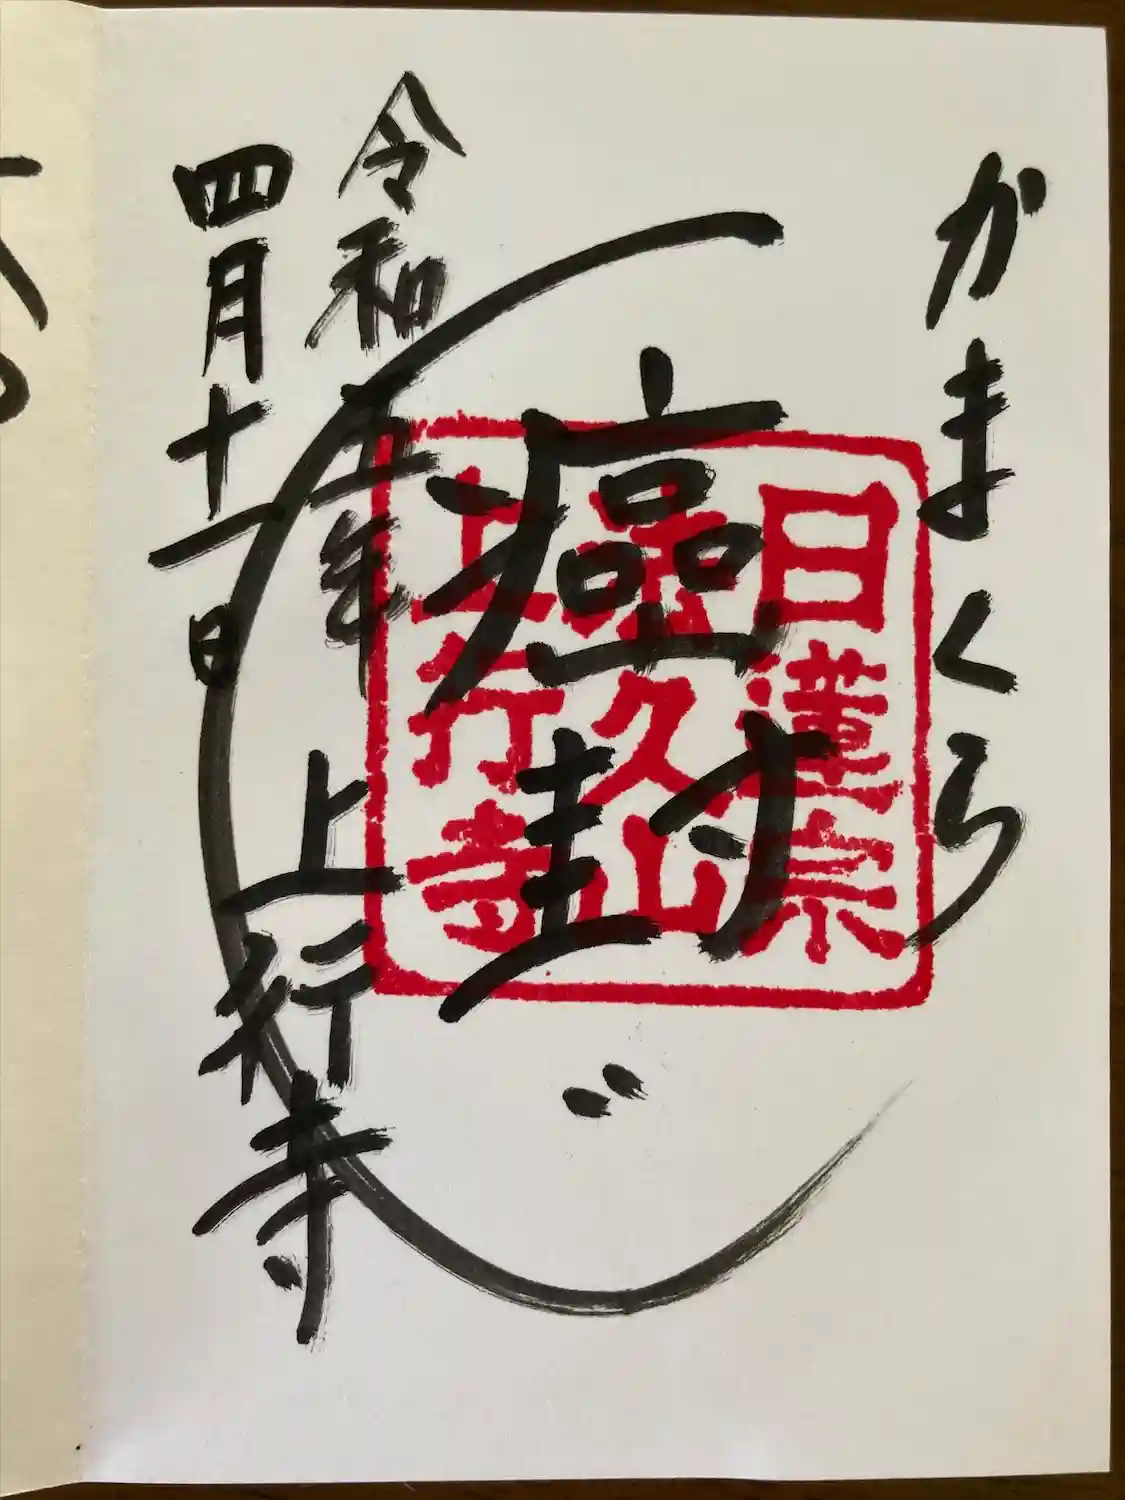 かまくら
癌封じ
令和五年
四月十一日
上行寺
日蓮宗
久山
上行寺